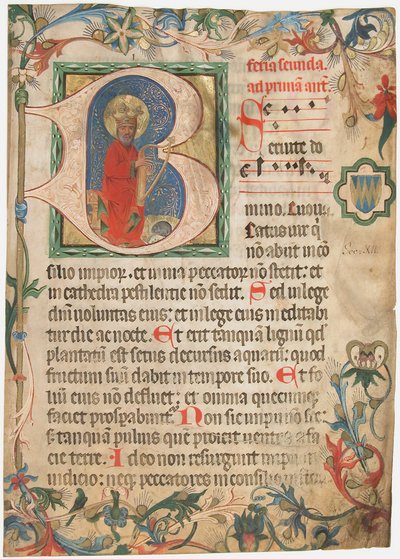 feria secunda.
ad primā ant.
Seruite do
mino. Euouae
B Eatus uir q
nō abiit in cō
silio impior. et in uia peccator nō stetit: et
in cathedra pestilencie nō sedit. Sed in lege
dn̄i voluntas eius: et in lege eius meditabi
tur die ac nocte. Et erit tanquā lignū qd
plantatū est secus decursus aquarū: quod
fructum suū dabit in tempore suo. Et fo
lium eius nō defluet: et omnia quecunq;
faciet prosperabunt. Non sic impii nō sic:
s; tanquā puluis quē proicit uentus a fa
cie terre. Ideo non resurgunt impii in
iudicio: neq; peccatores in consilio